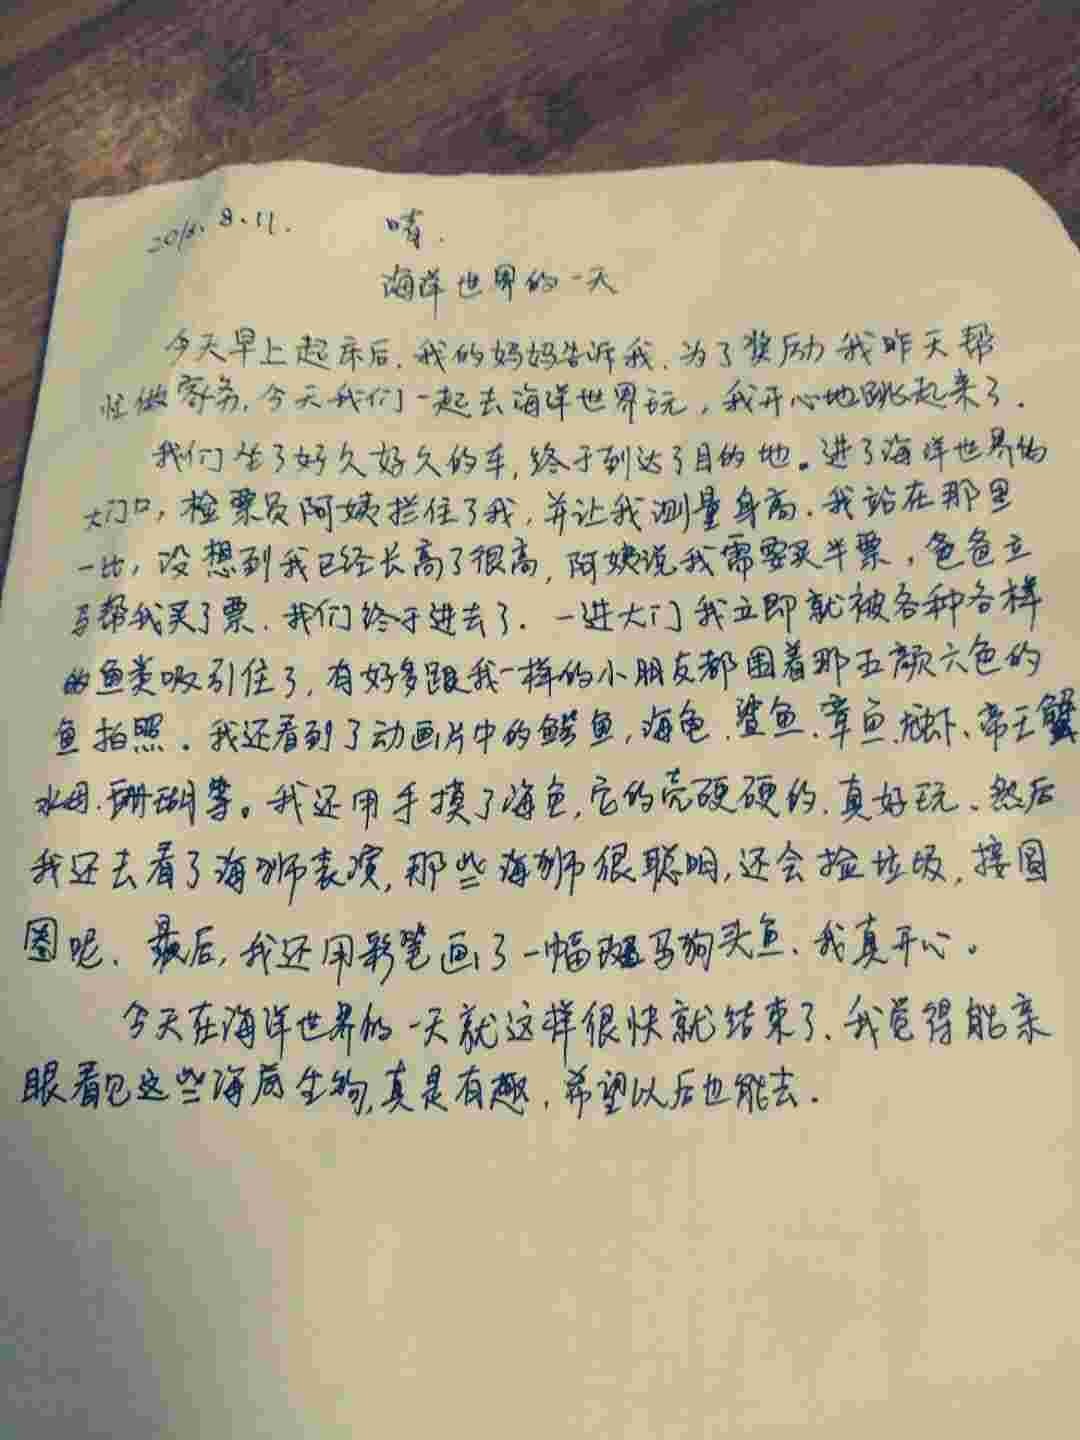 2018.8.11. 晴.
海洋世界的一天
今天早上起床后,我的妈妈告诉我,为了奖励我昨天帮
忙做家务,今天我们一起去海洋世界玩,我开心地跳起来了.
我们坐了好久好久的车,终于到达了目的地。进了海洋世界的
大门口,检票员阿姨拦住了我,并让我测量身高.我站在那里
一比,没想到我已经长高了很高,阿姨说我需要买半票,爸爸立
马帮我买了票.我们终于进去了.一进大门我立即就被各种各样
的鱼类吸引住了,有好多跟我一样的小朋友都围着那五颜六色的
鱼拍照。我还看到了动画片中的鳄鱼,海龟、鲨鱼、章鱼、龙虾、帝王蟹
水母、珊瑚等。我还用手摸了海龟,它的壳硬硬的,真好玩、然后
我还去看了海狮表演,那些海狮很聪明,还会捡垃圾,接圆
圈呢、最后,我还用彩笔画了一幅斑马狗头鱼、我真开心。
今天在海洋世界的一天就这样很快就结束了、我觉得能亲
眼看见这些海底生物,真是有趣,希望以后也能去.